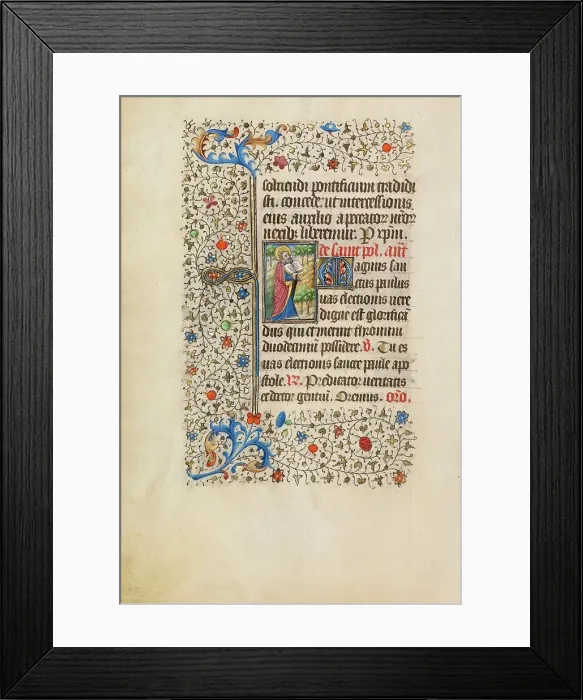 soluendi pontificium tradidi
sti. concede. ut intercessionis
eius auxilio a peccatorū nr̄or̄
nexib; liberemur. P xp̄m.
de saint pol. ant̄
Magnus san
ctus paulus
uas electionis uere
digne est glorificā
dus qui et meruit thronum
duodecimū possidere. V. Tu es
uas electionis sancte paule apo
stole. R. Predicator ueritatis
et doctor gentiū. Oremus. orō.